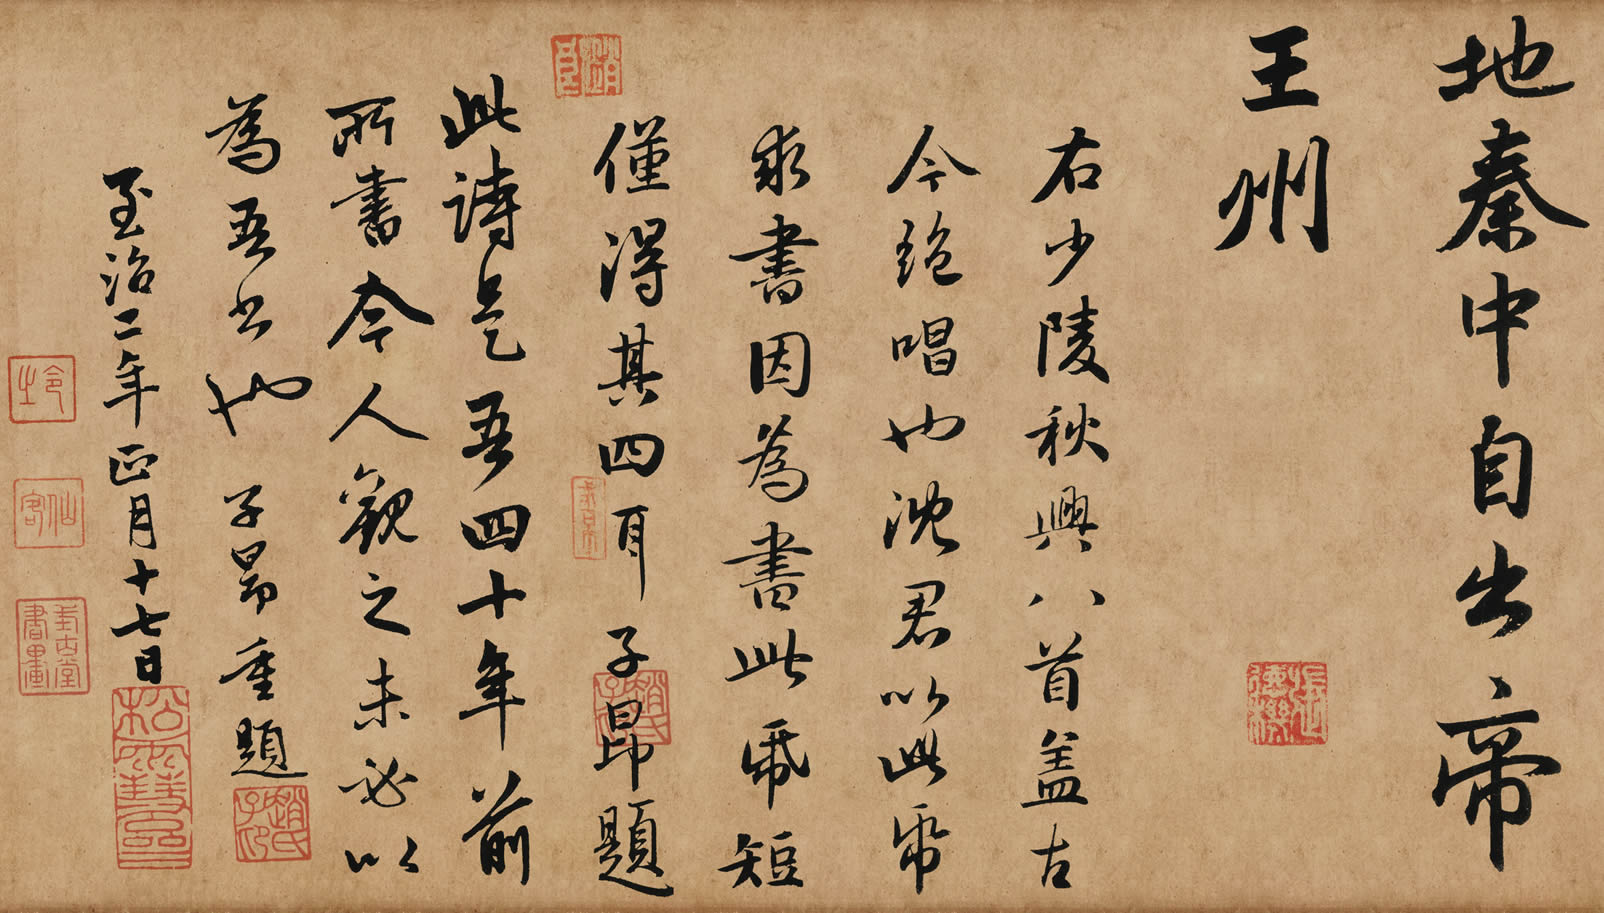 地秦中自出帝
王州
右少陵秋興八首盖古
今絶唱也沈君以此帋
求書因為書此帋短
僅得其四耳子昂題
此詩是吾四十年前
所書今人觀之未必以
為吾書也子昂重題
至治二年正月十七日